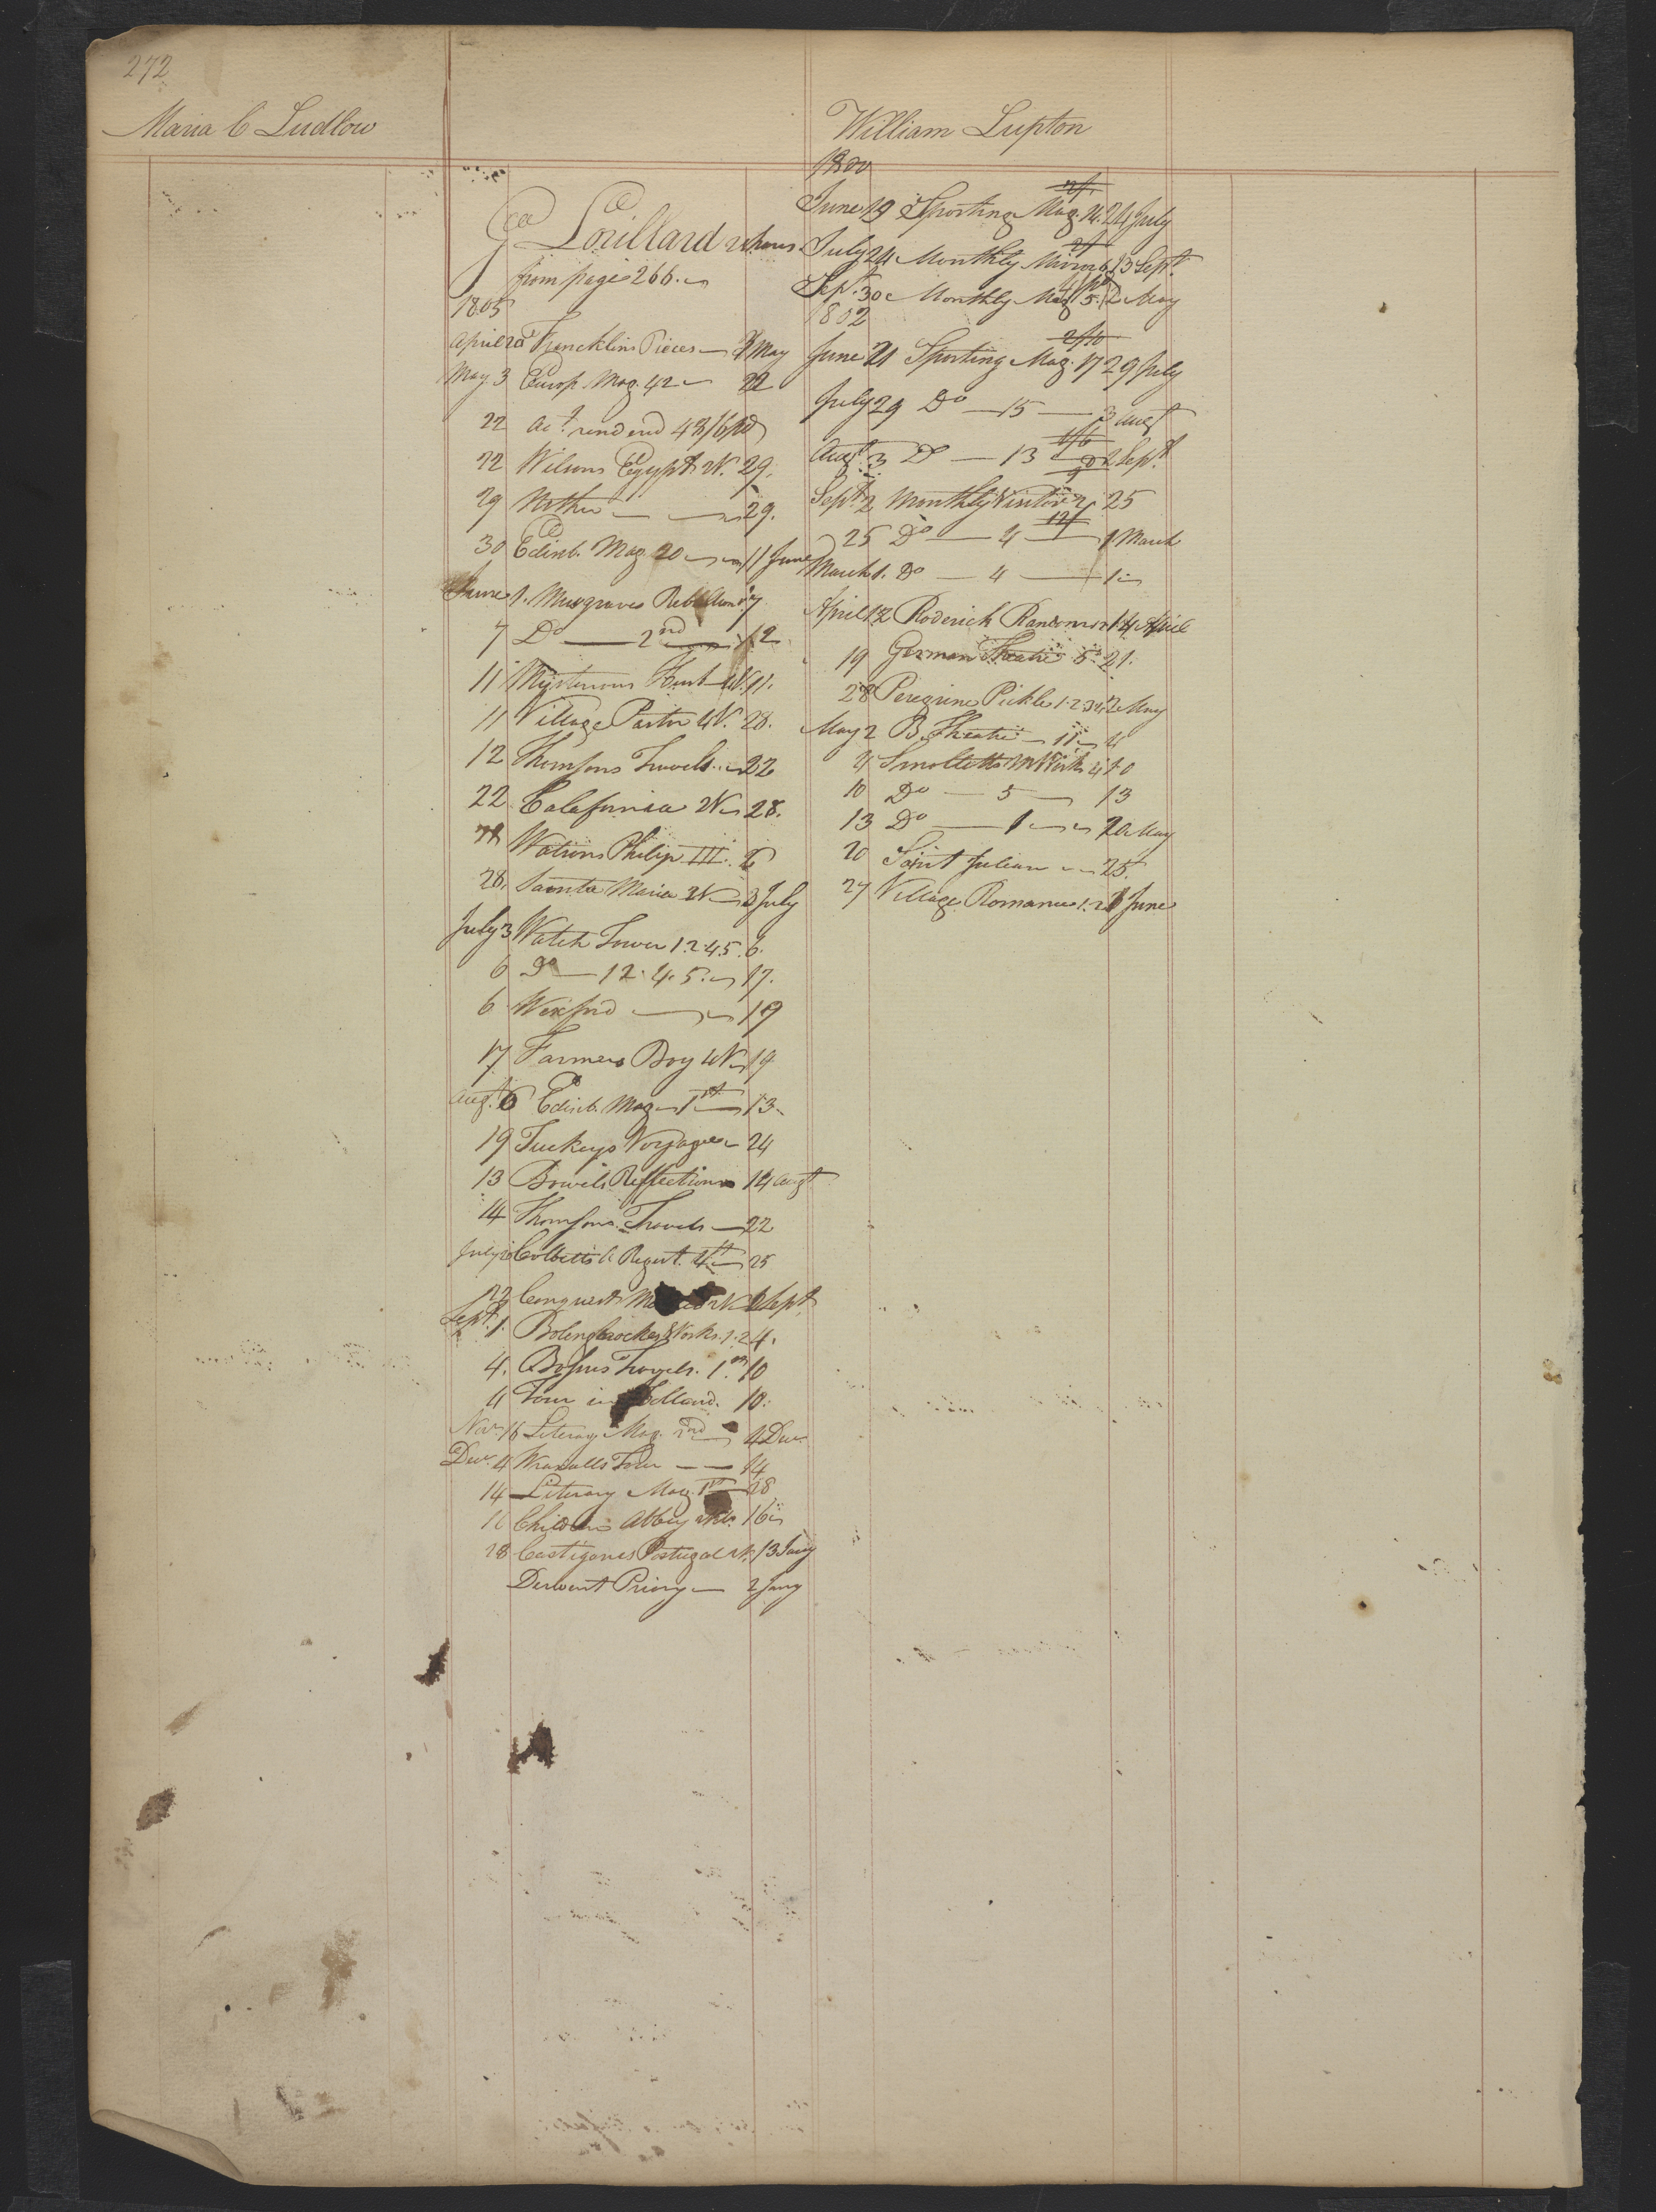 272
Maria C Ludlow
Geo Lorillard
from page 266.
1805
April 20 Francklins Pieces 3 May
May 3 Europ. Mag. 42 22
22 act. rendered 48/6 pd
22 Wilsons Egypt 2V. 29.
29 Mother 29.
30 Edinb. Mag. 20 11 June
June 1. Musgraves Rebellion 7
7 Do 2nd 12
11 Mysterious Husb 4V. 11.
11 Village Pastor 4V. 28.
12 Thomsons Travels 22
22 Calefurnia 2V 28.
Watsons Philip III. 6
28. Santa Maria 2V 3 July
July 3 Watch Tower 1.2.4.5. 6.
6 Do 1 2. 4. 5. 17.
6 Wexford 19
17 Farmers Boy 4V 19
Augt. 6 Edinb. Mag 1st 13
19 Tuckeys Voyage 24
13 Bowels Reflections 14 augt
14 Thomsons Travels 22
July Cobbetts A. Regist. 4th 25
22 Conquest 2V Sept.
Sept. 1. Bolingbrockes Works. 1. 2 4.
4. Travels. 1st. 10
4 Tour in Holland. 10.
Nov. 16 Literary Mag. 2nd 4 Decr.
Decr. 4 Wraxalls Tour 14
14 Literary Mag. 1st 28
16 Children Abbey 16
28 Costigans Portugal 2V. 13 Jany
Derwent Priory 2 Jany
William Lupton
1800
June 19 Sporting Mag. 14. 24 July
July 24 Monthly Mirror 6 13 Sept.
Sept. 30 Monthly Mag 5. 2 May
1802
2/10
June 21 Sporting Mag. 17 29 July
July 29 Do 15 3 augt
Augt. 3 Do 13 2 Sept.
Sept. 2 Monthly Visitor 2 25
25 Do 4 1 March
March 1. Do 4 1
April 12 Roderich Random 14 April
19 German Theatre 5. 21.
28 Peregrine Pickle 1. 2. 3 4. 2 May
May 2 B. Theatre 11 4
4 Smolletts Works 4 10
10 Do 5 13
13 Do 1 20 May
20 Saint Julian 25.
27 Village Romance 1. 2 1 June